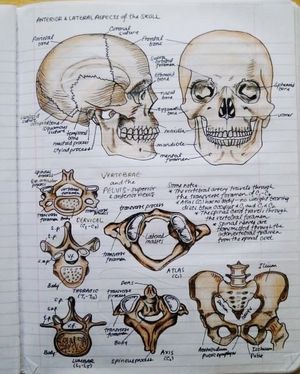 ANTERIOR & LATERAL ASPECTS of the SKULL
Coronal suture
Parietal bone
Frontal bone
Supra orbital foramen
ethmoid bone
nasal bone
Sphenoid bone
zygomatic bone
vomer
Squamous suture
temporal bone
mastoid process
styloid process
maxilla
mandible
mental foramen
VERTEBRAE
and the
PELVIS - superior
& anterior views
Some notes:
The vertebral artery travels through
the transverse foramen
Atlas (C1) has no body - no weight bearing
disc between C1 and C2
The spinal cord travels through
the vertebral foramen
Spinal nerves are
transmitted through the
intervertebral foramen
from the spinal cord
transverse foramen
Body
CERVICAL
(C3-C6)
transverse process
Lateral masses
transverse foramen
ATLAS
(C1)
S.P.
V.F.
Body
THORACIC
(T1-T12)
Dens
transverse process
transverse foramen
Body
AXIS
(C2)
Spinous process
S.P.
V.F.
Body
LUMBAR
(L1-L5)
Ilium
Acetabulum
Pubic symphysis
Ischium
Pubis